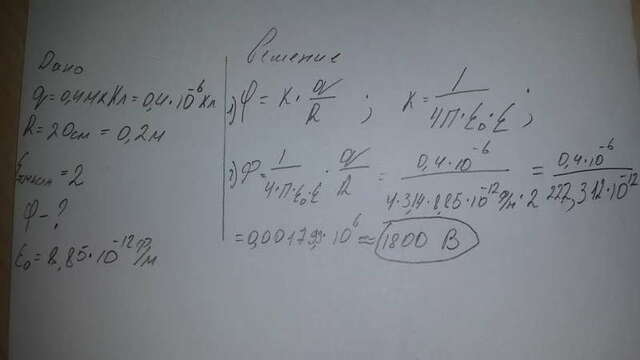 Дано
q = 0,4 мкКл = 0,4·10⁻⁶ Кл
R = 20см = 0,2м
= 2
φ - ?
ε₀ = 8,85·10⁻¹² Ф/м
Решение
1) φ = K · q/R ; K = 1/(4П·ε₀·ε) ;
2) φ = 1/(4·П·ε₀·ε) · q/R = 0,4·10⁻⁶/(4·3,14·8,85·10⁻¹² Ф/м · 2 = 0,4·10⁻⁶/222,312·10⁻¹²
= 0,001799·10⁶ ≈ 1800 В